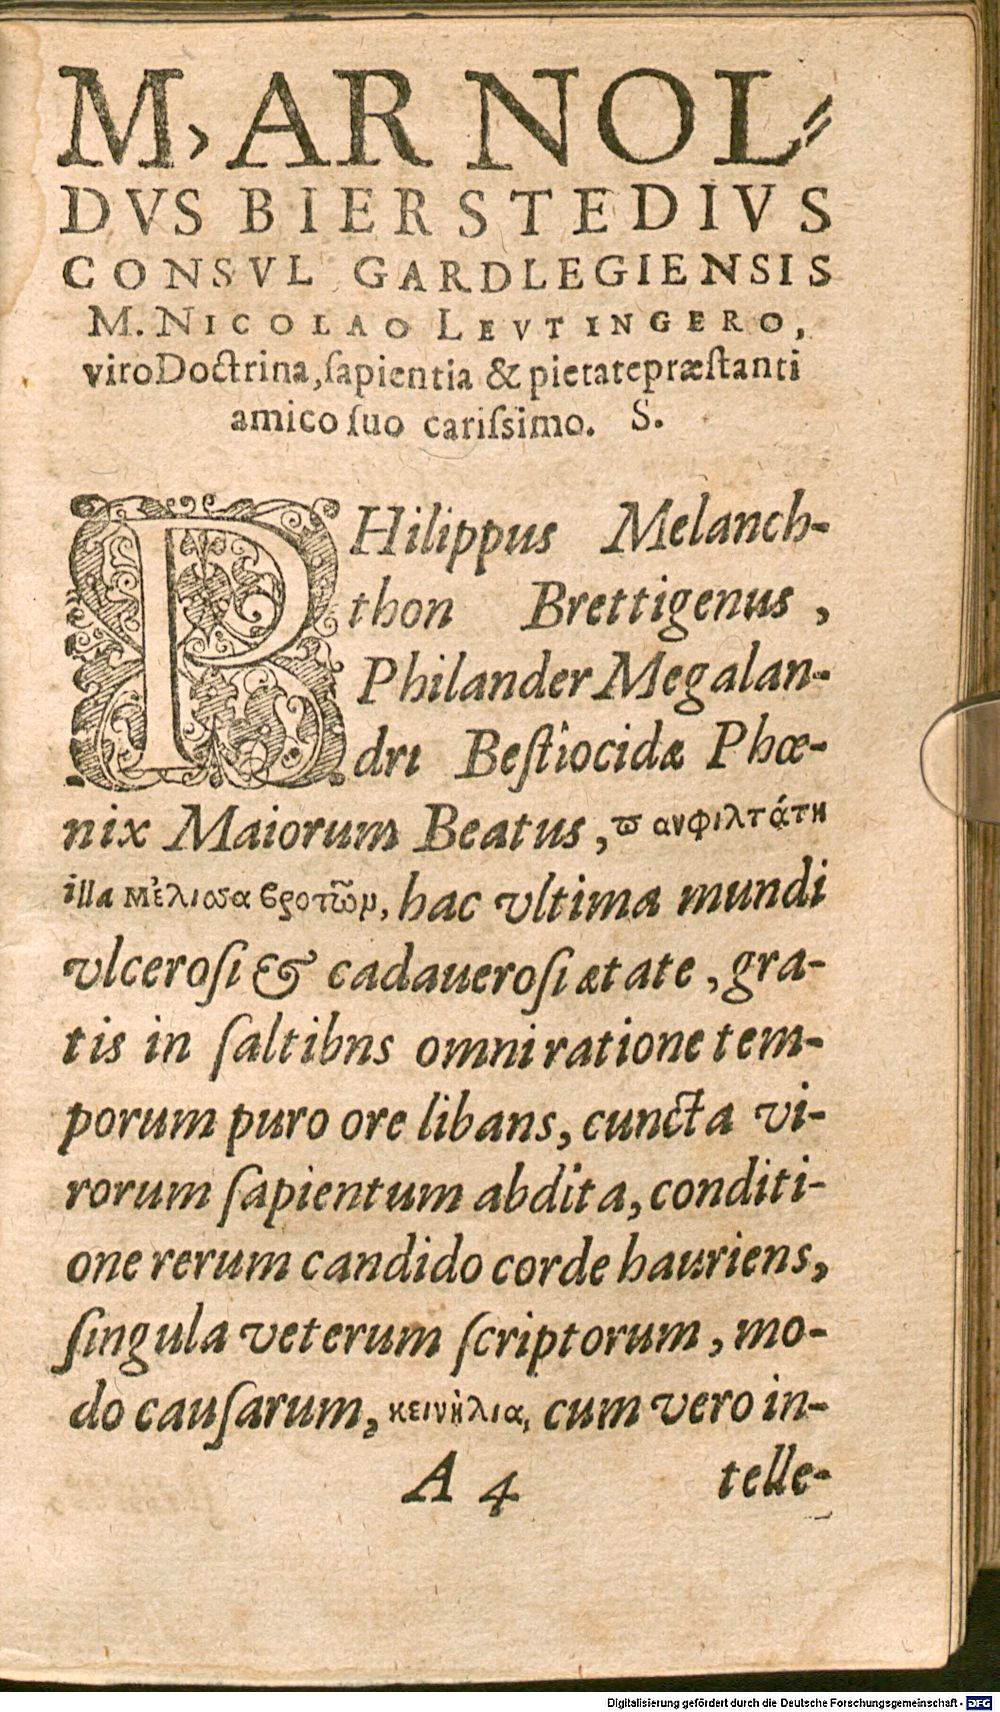 M. ARNOL-
DVS BIERSTEDIVS
CONSVL GARDLEGIENSIS
M. NICOLAO LEVTINGERO,
viro Doctrina, ſapientia & pietate præſtanti
amico ſuo cariſsimo. S.
PHilippus Melanch-
thon Brettigenus,
Philander Megalan-
dri Beſtiocidæ Phœ-
nix Maiorum Beatus, ϖ ανφιλτάτη
illa μέλισσα βροτῶμ, hac vltima mundi
vlceroſi & cadaueroſi ætate, gra-
tis in ſaltibns omni ratione tem-
porum puro ore libans, cuncta vi-
rorum ſapientum abdita, conditi-
one rerum candido corde hauriens,
ſingula veterum ſcriptorum, mo-
do cauſarum, κεινήλια, cum vero in-
A 4 telle-
Digitalisierung gefördert durch die Deutsche Forschungsgemeinschaft - DFG